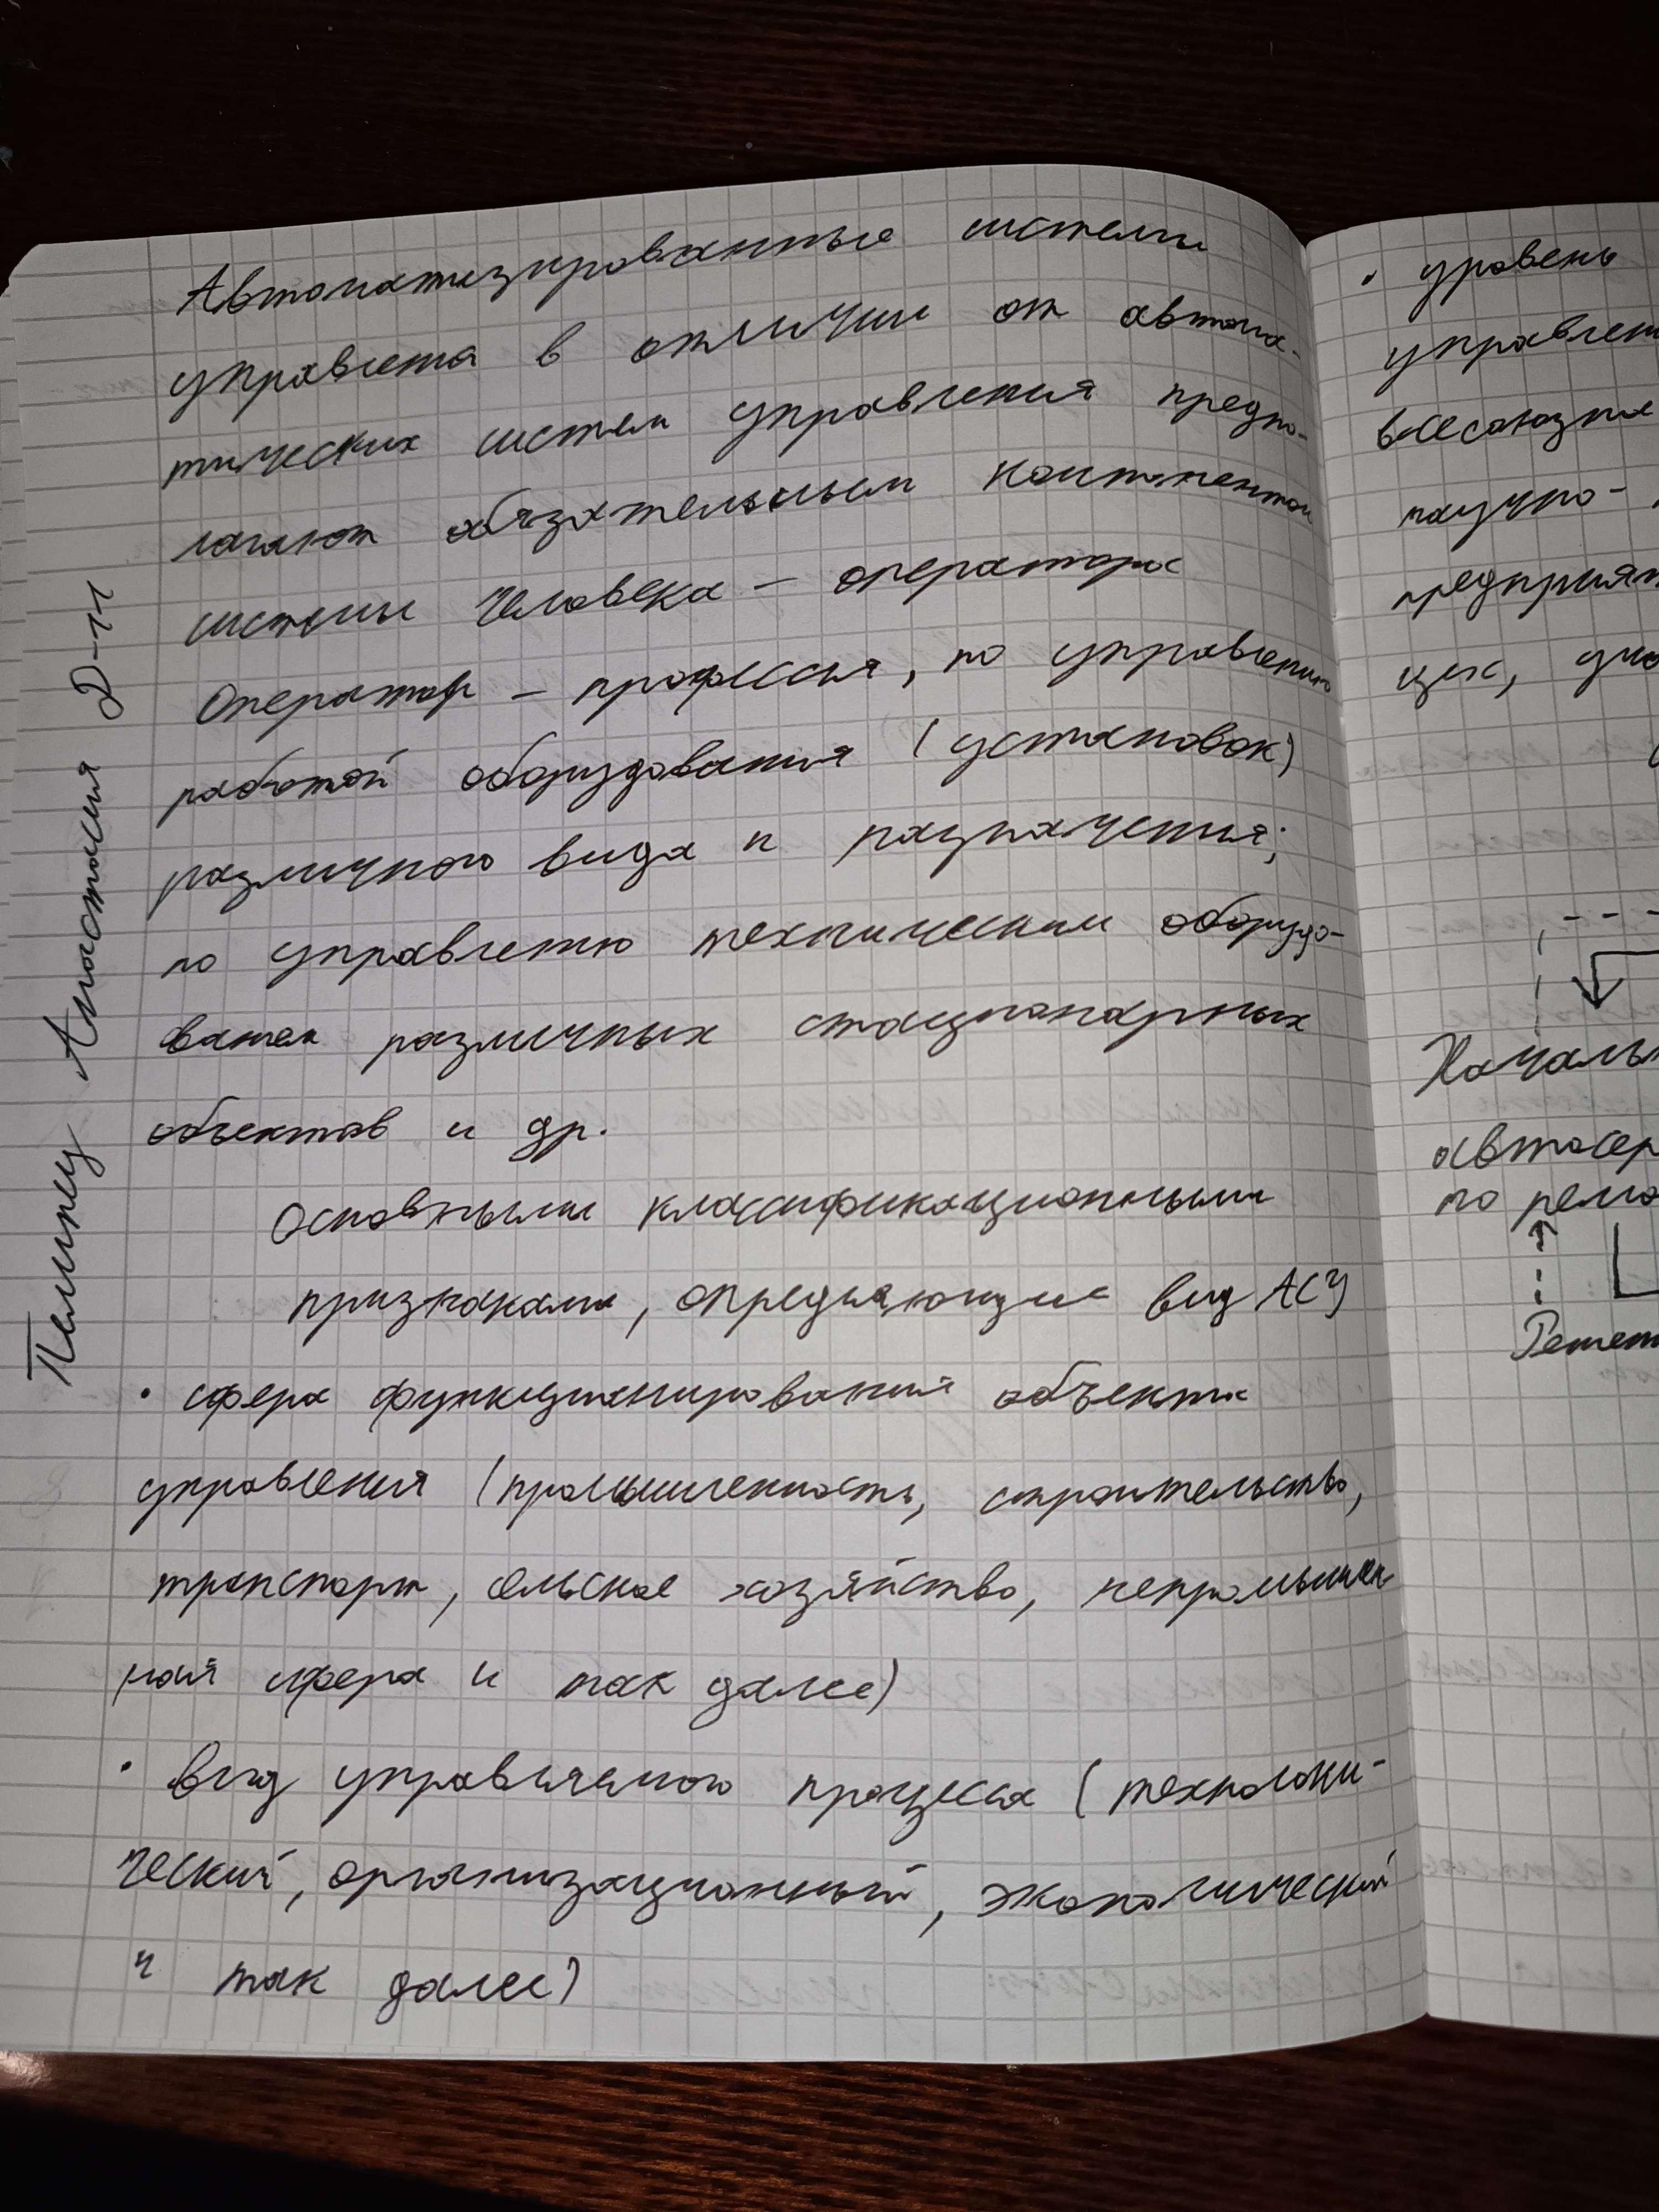 Автоматизированные системы
управлета в отличии от автома-
тических систем управления предпо-
лагают обязательным компонентом
системы человека - оператора
Оператор - профессия, по управлению
работой оборудования (установок)
различного вида и назначения;
по управлению техническим оборудо-
ванием различных стационарных
объектов и др.
Основными классификационными
признаками, определяющие вид АСУ
• сфера функционирования объекта
управления (промышленность, строительство,
транспорт, сельское хозяйство, непромышлен
ная сфера и так далее)
• вид управляемого процесса (технологи-
ческий, организационный, экономический
и так далее)
Анастасия Д-11
• уровень
управлен
всесоюзные
научно-
предприят
цех, уча
Началь
автосер
по ремо
Решет